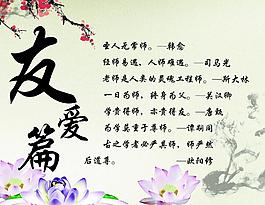 友爱篇
圣人无常师。—韩愈
经师易遇，人师难遇。—司马光
老师是人类的灵魂工程师。—斯大林
一日为师，终身为父。—关汉卿
学贵得师，亦贵得友。—唐甄
为学莫重于尊师。—谭嗣同
古之学者必严其师，师严然
后道尊。—欧阳修